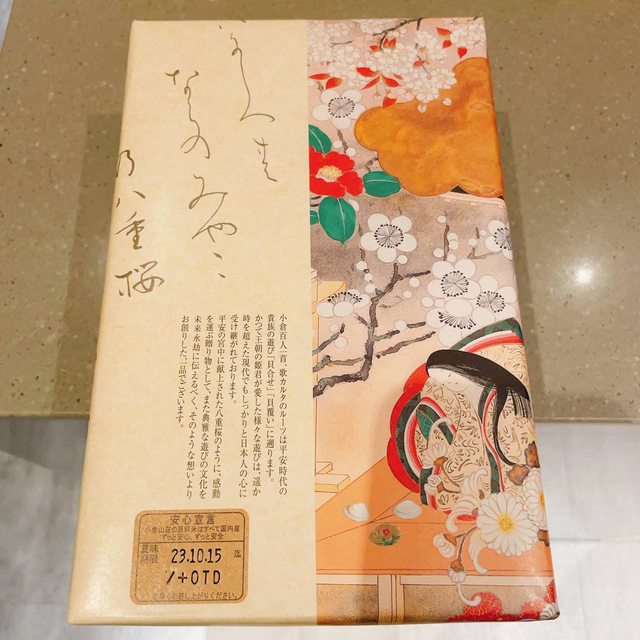 いにしへの
ならのみやこ
乃八重桜
小倉百人一首、歌カルタのルーツは平安時代の
貴族の遊び「貝合せ」「貝覆い」に遡ります。
かつて王朝の姫君が愛した様々な遊びは、遥か
時を超えた現代でもしっかりと日本人の心に
受け継がれております。
平安の宮中に献上された八重桜のように、感動
を運ぶ贈り物として、また典雅な遊びの文化を
未来永劫に伝えるべく、そのような想いより
お創りした、一品でございます。
安心宣言
小倉山荘の原料米はすべて国内産
ずっと安心、ずっと安全
賞味
期限
23.10.15
迄
/+OTD
お早くお召し上がりください。